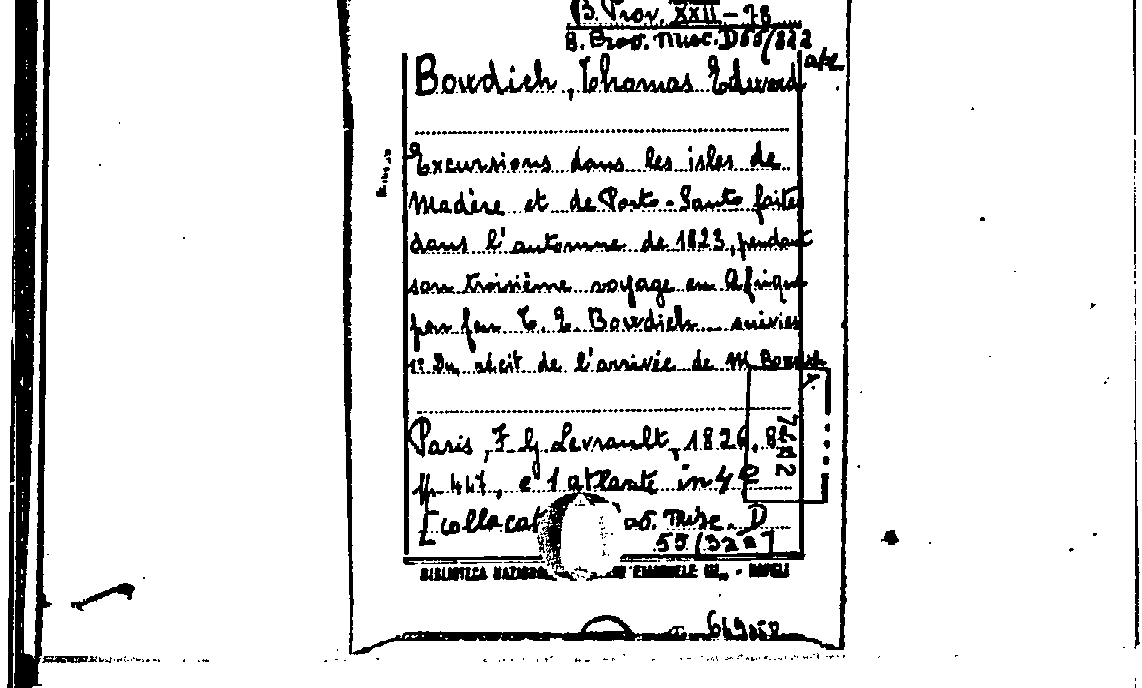 B. Prov. XXII-78
B. Prov. Misc. D 55/322
Bowdich, Thomas Edward
Excursions dans les isles de
Madère et de Porto-Santo faites
dans l'automne de 1823, pendant
son troisième voyage en Afrique
par feu T. E. Bowdich suivies
1° Du récit de l'arrivée de M. Bowdich
Paris, F. G. Levrault, 1826, 8º
pp. 447, e 1 atlante in 4º
[collocat Misc. D
55 (322]
BIBLIOTECA NAZIONA EMANUELE III - NAPOLI